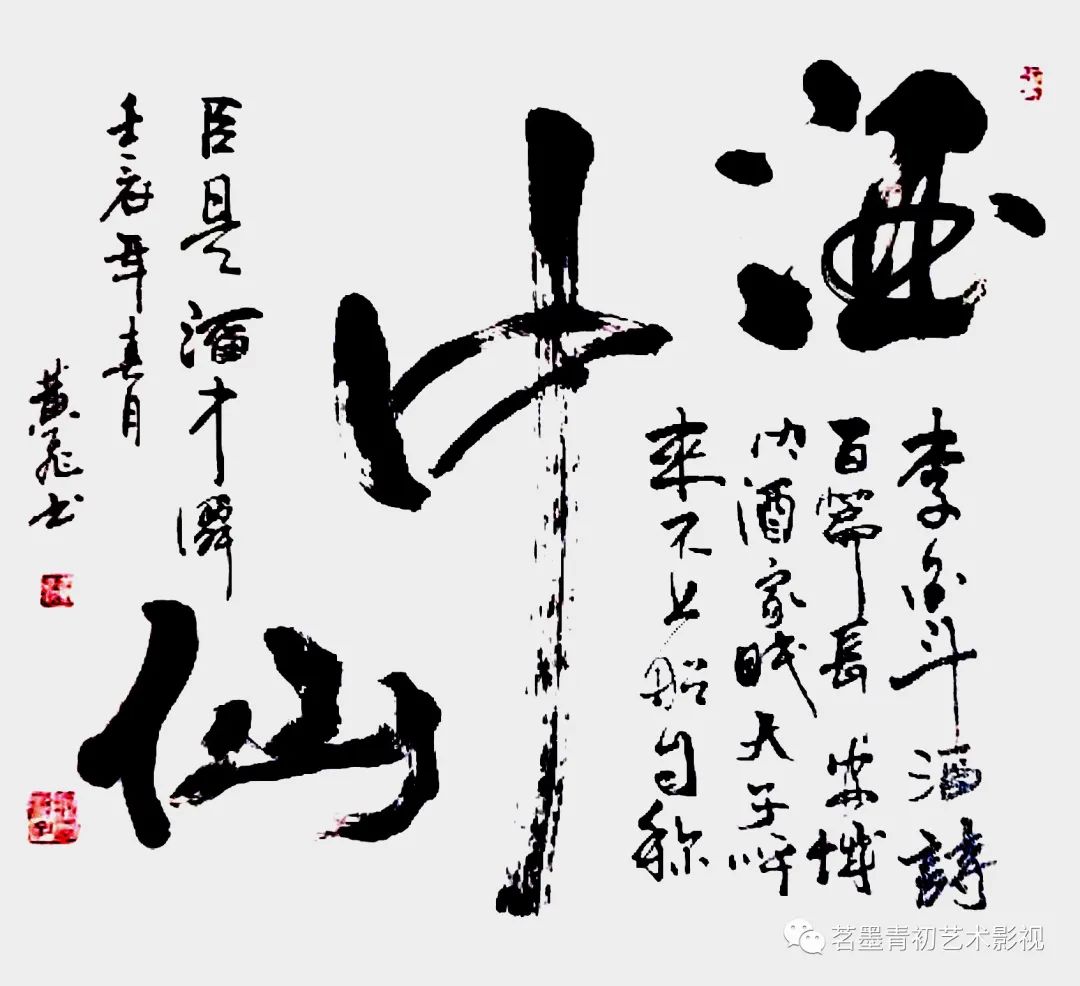 酒中仙
李白斗酒詩
百篇長安城
内酒家眠天子呼
來不上船自称
臣是酒中僊
壬辰年春月
黄飛书
茗墨青初艺术影视